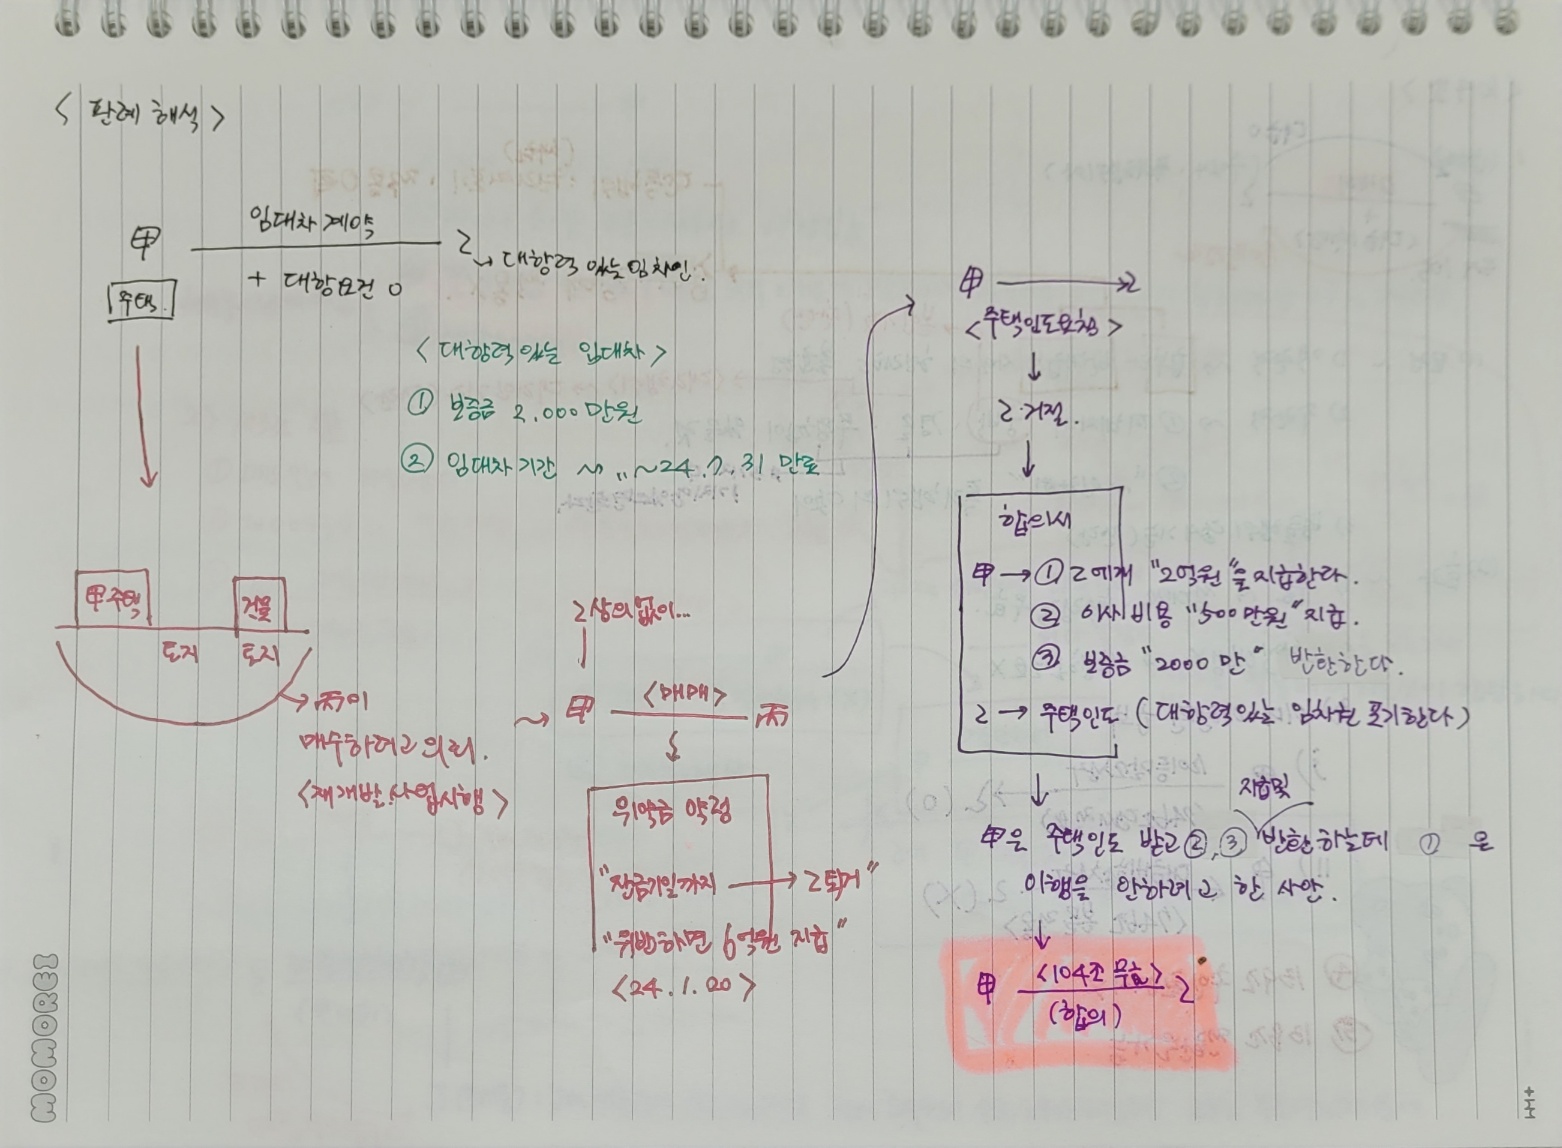 < 판례 해석 >
甲 임대차 계약 乙
+ 대항요건 o
↳ 대항력 있는 임차인.
주택.
< 대항력 있는 임대차 >
① 보증금 2,000만원
② 임대차 기간 ~ ,, ~24.7.31 만료
甲주택
건물
토지
토지
→ 丙이
매수하려고 의뢰.
<재개발 사업시행>
乙 상의 없이...
~> 甲 <매매> 丙
위약금 약정
"잔금기일까지 → 乙 퇴거"
"위반하면 6억원 지급"
<24.1.20>
甲 → 乙
<주택인도요청>
↓
乙 거절.
↓
합의서
甲 → ① 乙에게 "2억원"을 지급한다.
② 이사 비용 "500만원" 지급.
③ 보증금 "2000만" 반환한다.
乙 → 주택인도 (대항력 있는 임차권 포기한다)
↓
지급 및
甲은 주택인도 받고 ②,③ 반환하는데 ①은
이행을 안하려고 한 사안.
↓
甲 <104조 무효> 乙
(합의)
MOMOREI